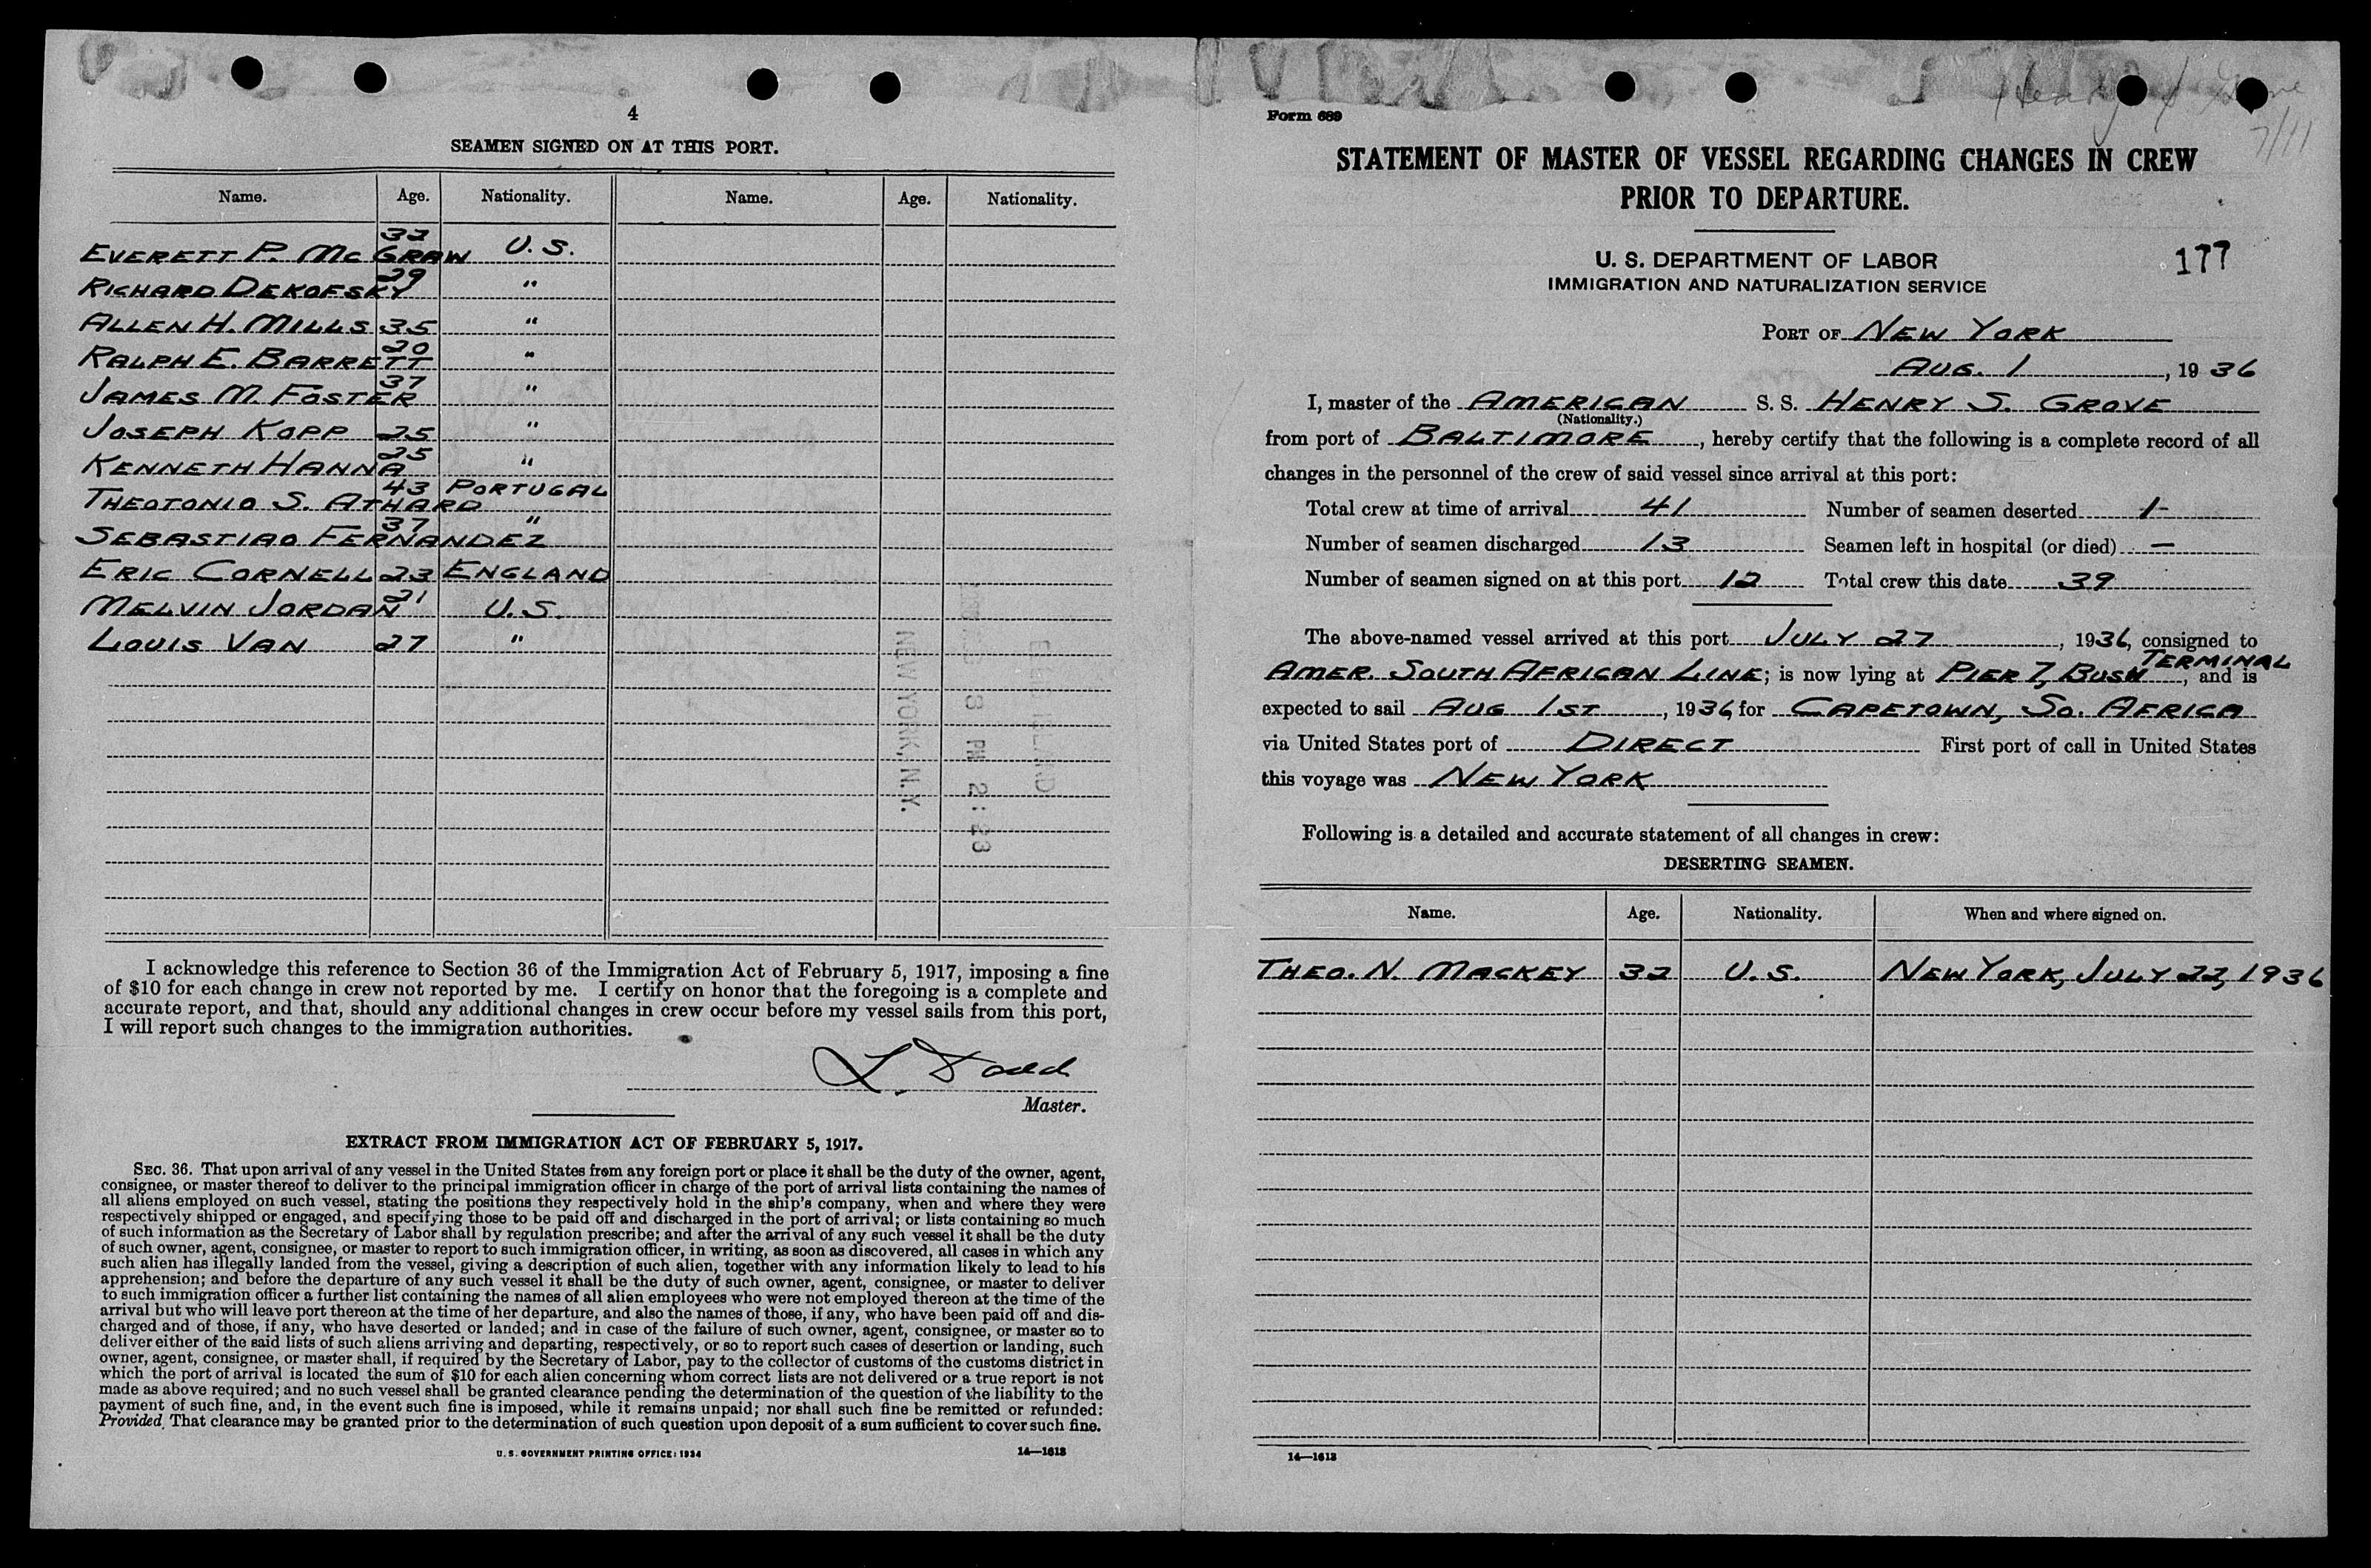 4
SEAMEN SIGNED ON AT THIS PORT.
Name. Age. Nationality. Name. Age. Nationality.
EVERETT P. MCGRAW 32 U.S.
RICHARD DEKOFSKY 29 "
ALLEN H. MILLS 35 "
RALPH E. BARRETT 20 "
JAMES M. FOSTER 37 "
JOSEPH KOPP 25 "
KENNETH HANNA 25 "
THEOTONIO S. ATHARD 43 PORTUGAL
SEBASTIAO FERNANDEZ 37 "
ERIC CORNELL 23 ENGLAND
MELVIN JORDAN 21 U.S.
LOUIS VAN 27 "
NEW YORK, N.Y.
3 PM 2:23
I acknowledge this reference to Section 36 of the Immigration Act of February 5, 1917, imposing a fine
of $10 for each change in crew not reported by me. I certify on honor that the foregoing is a complete and
accurate report, and that, should any additional changes in crew occur before my vessel sails from this port,
I will report such changes to the immigration authorities.
L. Dodd
Master.
EXTRACT FROM IMMIGRATION ACT OF FEBRUARY 5, 1917.
SEC. 36. That upon arrival of any vessel in the United States from any foreign port or place it shall be the duty of the owner, agent,
consignee, or master thereof to deliver to the principal immigration officer in charge of the port of arrival lists containing the names of
all aliens employed on such vessel, stating the positions they respectively hold in the ship's company, when and where they were
respectively shipped or engaged, and specifying those to be paid off and discharged in the port of arrival; or lists containing so much
of such information as the Secretary of Labor shall by regulation prescribe; and after the arrival of any such vessel it shall be the duty
of such owner, agent, consignee, or master to report to such immigration officer, in writing, as soon as discovered, all cases in which any
such alien has illegally landed from the vessel, giving a description of such alien, together with any information likely to lead to his
apprehension; and before the departure of any such vessel it shall be the duty of such owner, agent, consignee, or master to deliver
to such immigration officer a further list containing the names of all alien employees who were not employed thereon at the time of the
arrival but who will leave port thereon at the time of her departure, and also the names of those, if any, who have been paid off and dis-
charged and of those, if any, who have deserted or landed; and in case of the failure of such owner, agent, consignee, or master so to
deliver either of the said lists of such aliens arriving and departing, respectively, or so to report such cases of desertion or landing, such
owner, agent, consignee, or master shall, if required by the Secretary of Labor, pay to the collector of customs of the customs district in
which the port of arrival is located the sum of $10 for each alien concerning whom correct lists are not delivered or a true report is not
made as above required; and no such vessel shall be granted clearance pending the determination of the question of the liability to the
payment of such fine, and, in the event such fine is imposed, while it remains unpaid; nor shall such fine be remitted or refunded:
Provided, That clearance may be granted prior to the determination of such question upon deposit of a sum sufficient to cover such fine.
U. S. GOVERNMENT PRINTING OFFICE: 1934 14—1613
7/11
Form 689
STATEMENT OF MASTER OF VESSEL REGARDING CHANGES IN CREW
PRIOR TO DEPARTURE.
U. S. DEPARTMENT OF LABOR
IMMIGRATION AND NATURALIZATION SERVICE
177
PORT OF NEW YORK
AUG. 1, 1936
I, master of the AMERICAN S. S. HENRY S. GROVE
(Nationality.)
from port of BALTIMORE, hereby certify that the following is a complete record of all
changes in the personnel of the crew of said vessel since arrival at this port:
Total crew at time of arrival 41 Number of seamen deserted 1-
Number of seamen discharged 13 Seamen left in hospital (or died) —
Number of seamen signed on at this port 12 Total crew this date 39
The above-named vessel arrived at this port JULY 27, 1936, consigned to
AMER. SOUTH AFRICAN LINE; is now lying at PIER 7, BUSH TERMINAL, and is
expected to sail AUG 1ST, 1936, for CAPETOWN, SO. AFRICA
via United States port of DIRECT First port of call in United States
this voyage was NEW YORK
Following is a detailed and accurate statement of all changes in crew:
DESERTING SEAMEN.
Name. Age. Nationality. When and where signed on.
THEO. N. MACKEY 32 U.S. NEW YORK, JULY 22, 1936
14—1613